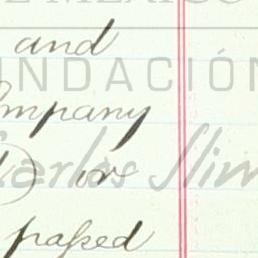 DE MÉXICO
and
FUNDACIÓN
ompany
Carlos Slim
) or
paſsed